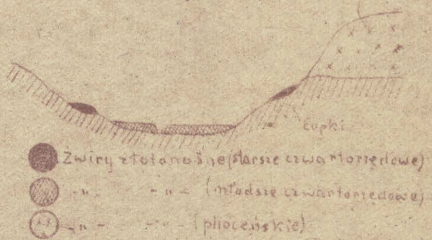 łupki
Żwiry złotonośne (starsze czwartorzędowe)
-"- -"- (młodsze czwartorzędowe)
-"- -"- (plioceńskie)